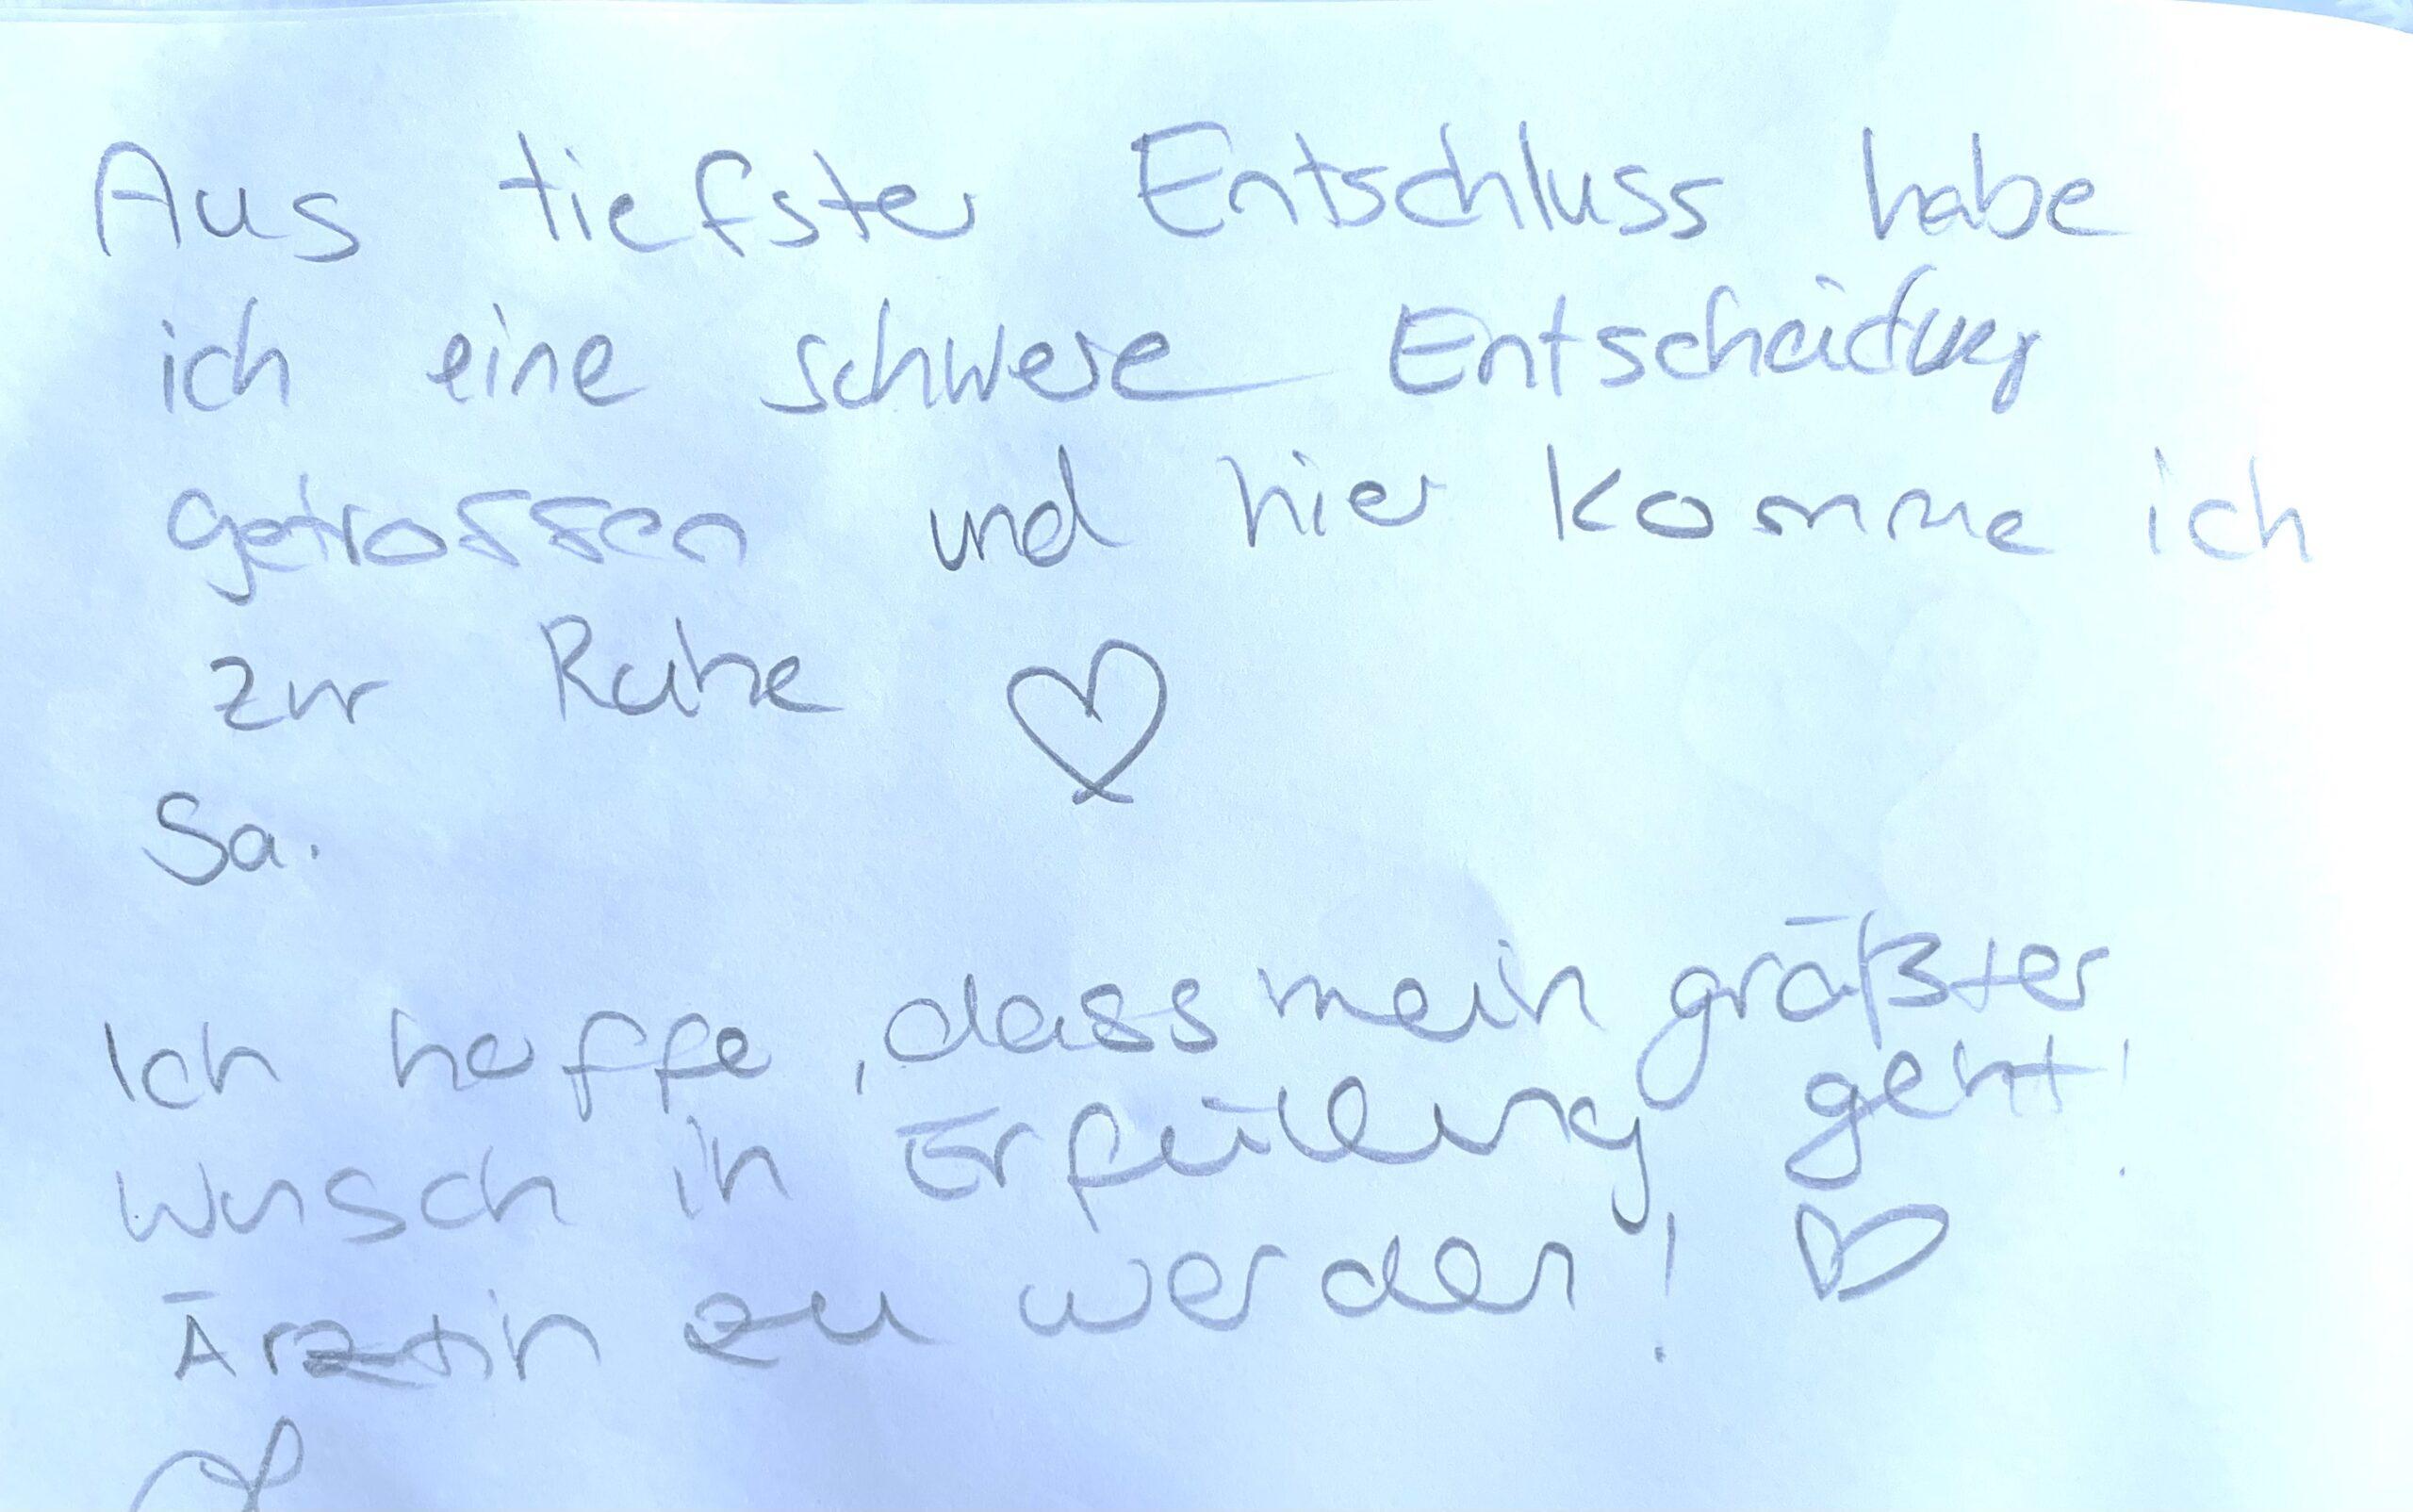 Aus tiefster Entschluss habe
ich eine schwere Entscheidung
getroffen und hier komme ich
zur Ruhe ♡
Sa.
Ich hoffe, dass mein größter
Wunsch in Erfüllung geht!
Ärztin zu werden! ♡